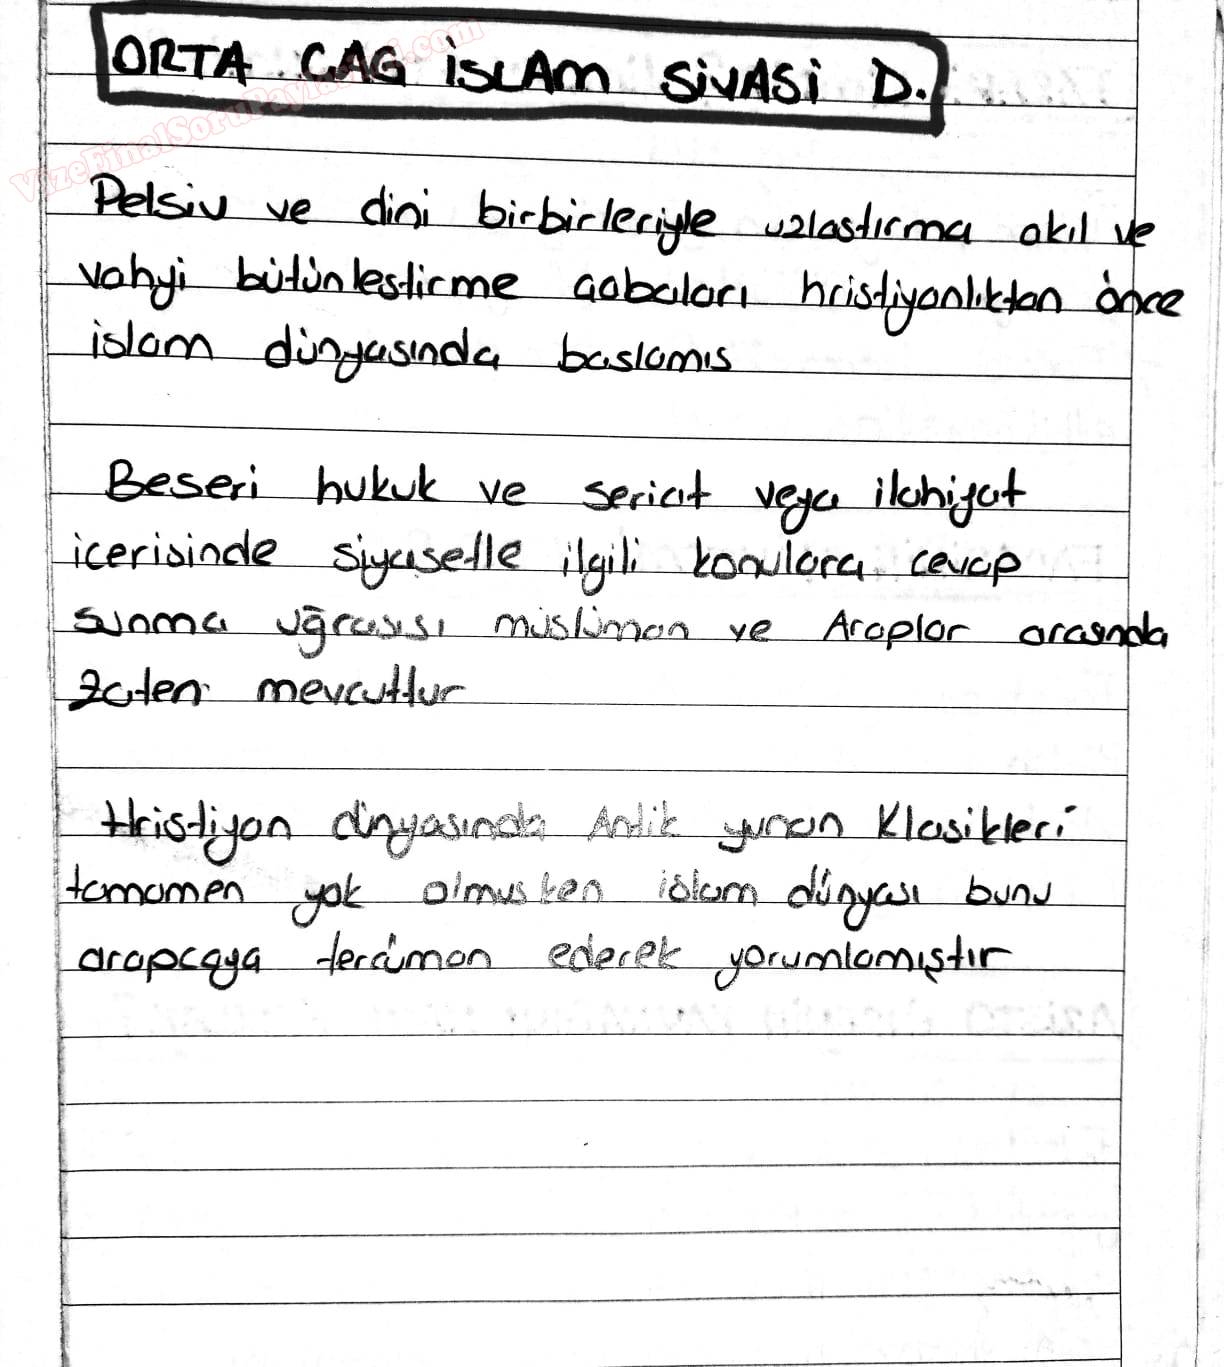 ORTA CAG İSLAM SİVASİ D.
VizeFinalSoruPaylasimi.com
Pelsiv ve dini birbirleriyle uzlastırma akıl ve
vahyi bütünlestirme çabaları hristiyanlıktan önce
islam dünyasında baslamıs
Beseri hukuk ve seriat veya ilahiyat
icerisinde siyasetle ilgili konulara cevap
sunma uğrasısı müslüman ve Araplar arasında
zaten mevcuttur
Hristiyan dünyasında Antik yunan Klasikleri
tamamen yok olmusken islam dünyası bunu
arapcaya tercüman ederek yorumlamıştır